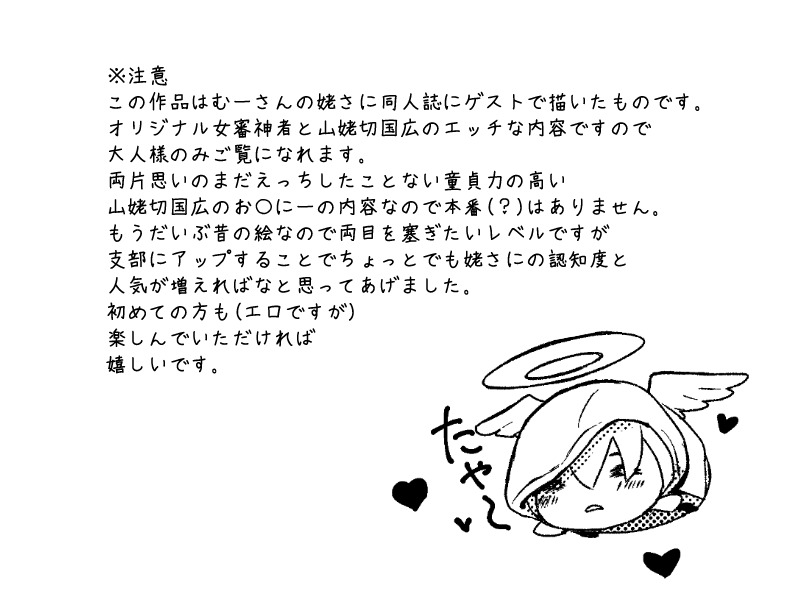 ※注意
この作品はむーさんの姥さに同人誌にゲストで描いたものです。
オリジナル女審神者と山姥切国広のエッチな内容ですので
大人様のみご覧になれます。
両片思いのまだえっちしたことない童貞力の高い
山姥切国広のお〇に一の内容なので本番(?)はありません。
もうだいぶ昔の絵なので両目を塞ぎたいレベルですが
支部にアップすることでちょっとでも姥さにの認知度と
人気が増えればなと思ってあげました。
初めての方も(エロですが)
楽しんでいただければ
嬉しいです。
たゃ〜